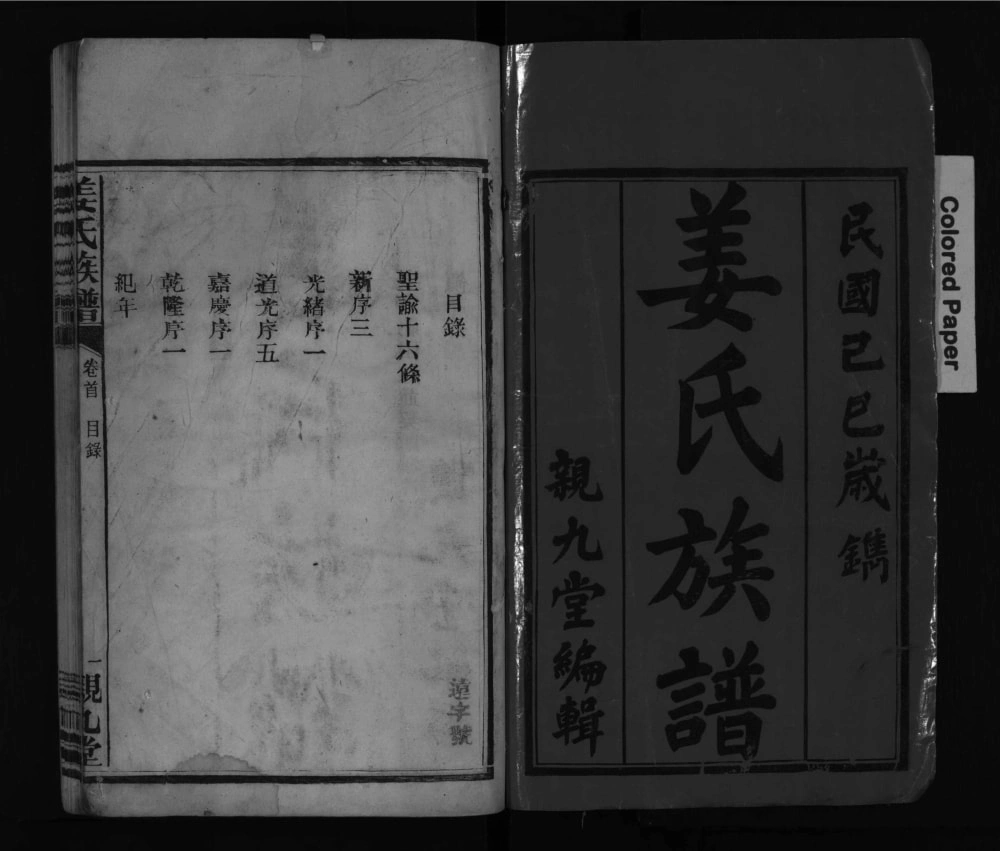 民國己巳歲鐫
姜氏族譜
親九堂編輯
Colored Paper
目錄
聖諭十六條
新序三
光緒序一
道光序五
嘉慶序一
乾隆序一
紀年
遠字號
姜氏族譜
卷首 目錄
一
親九堂